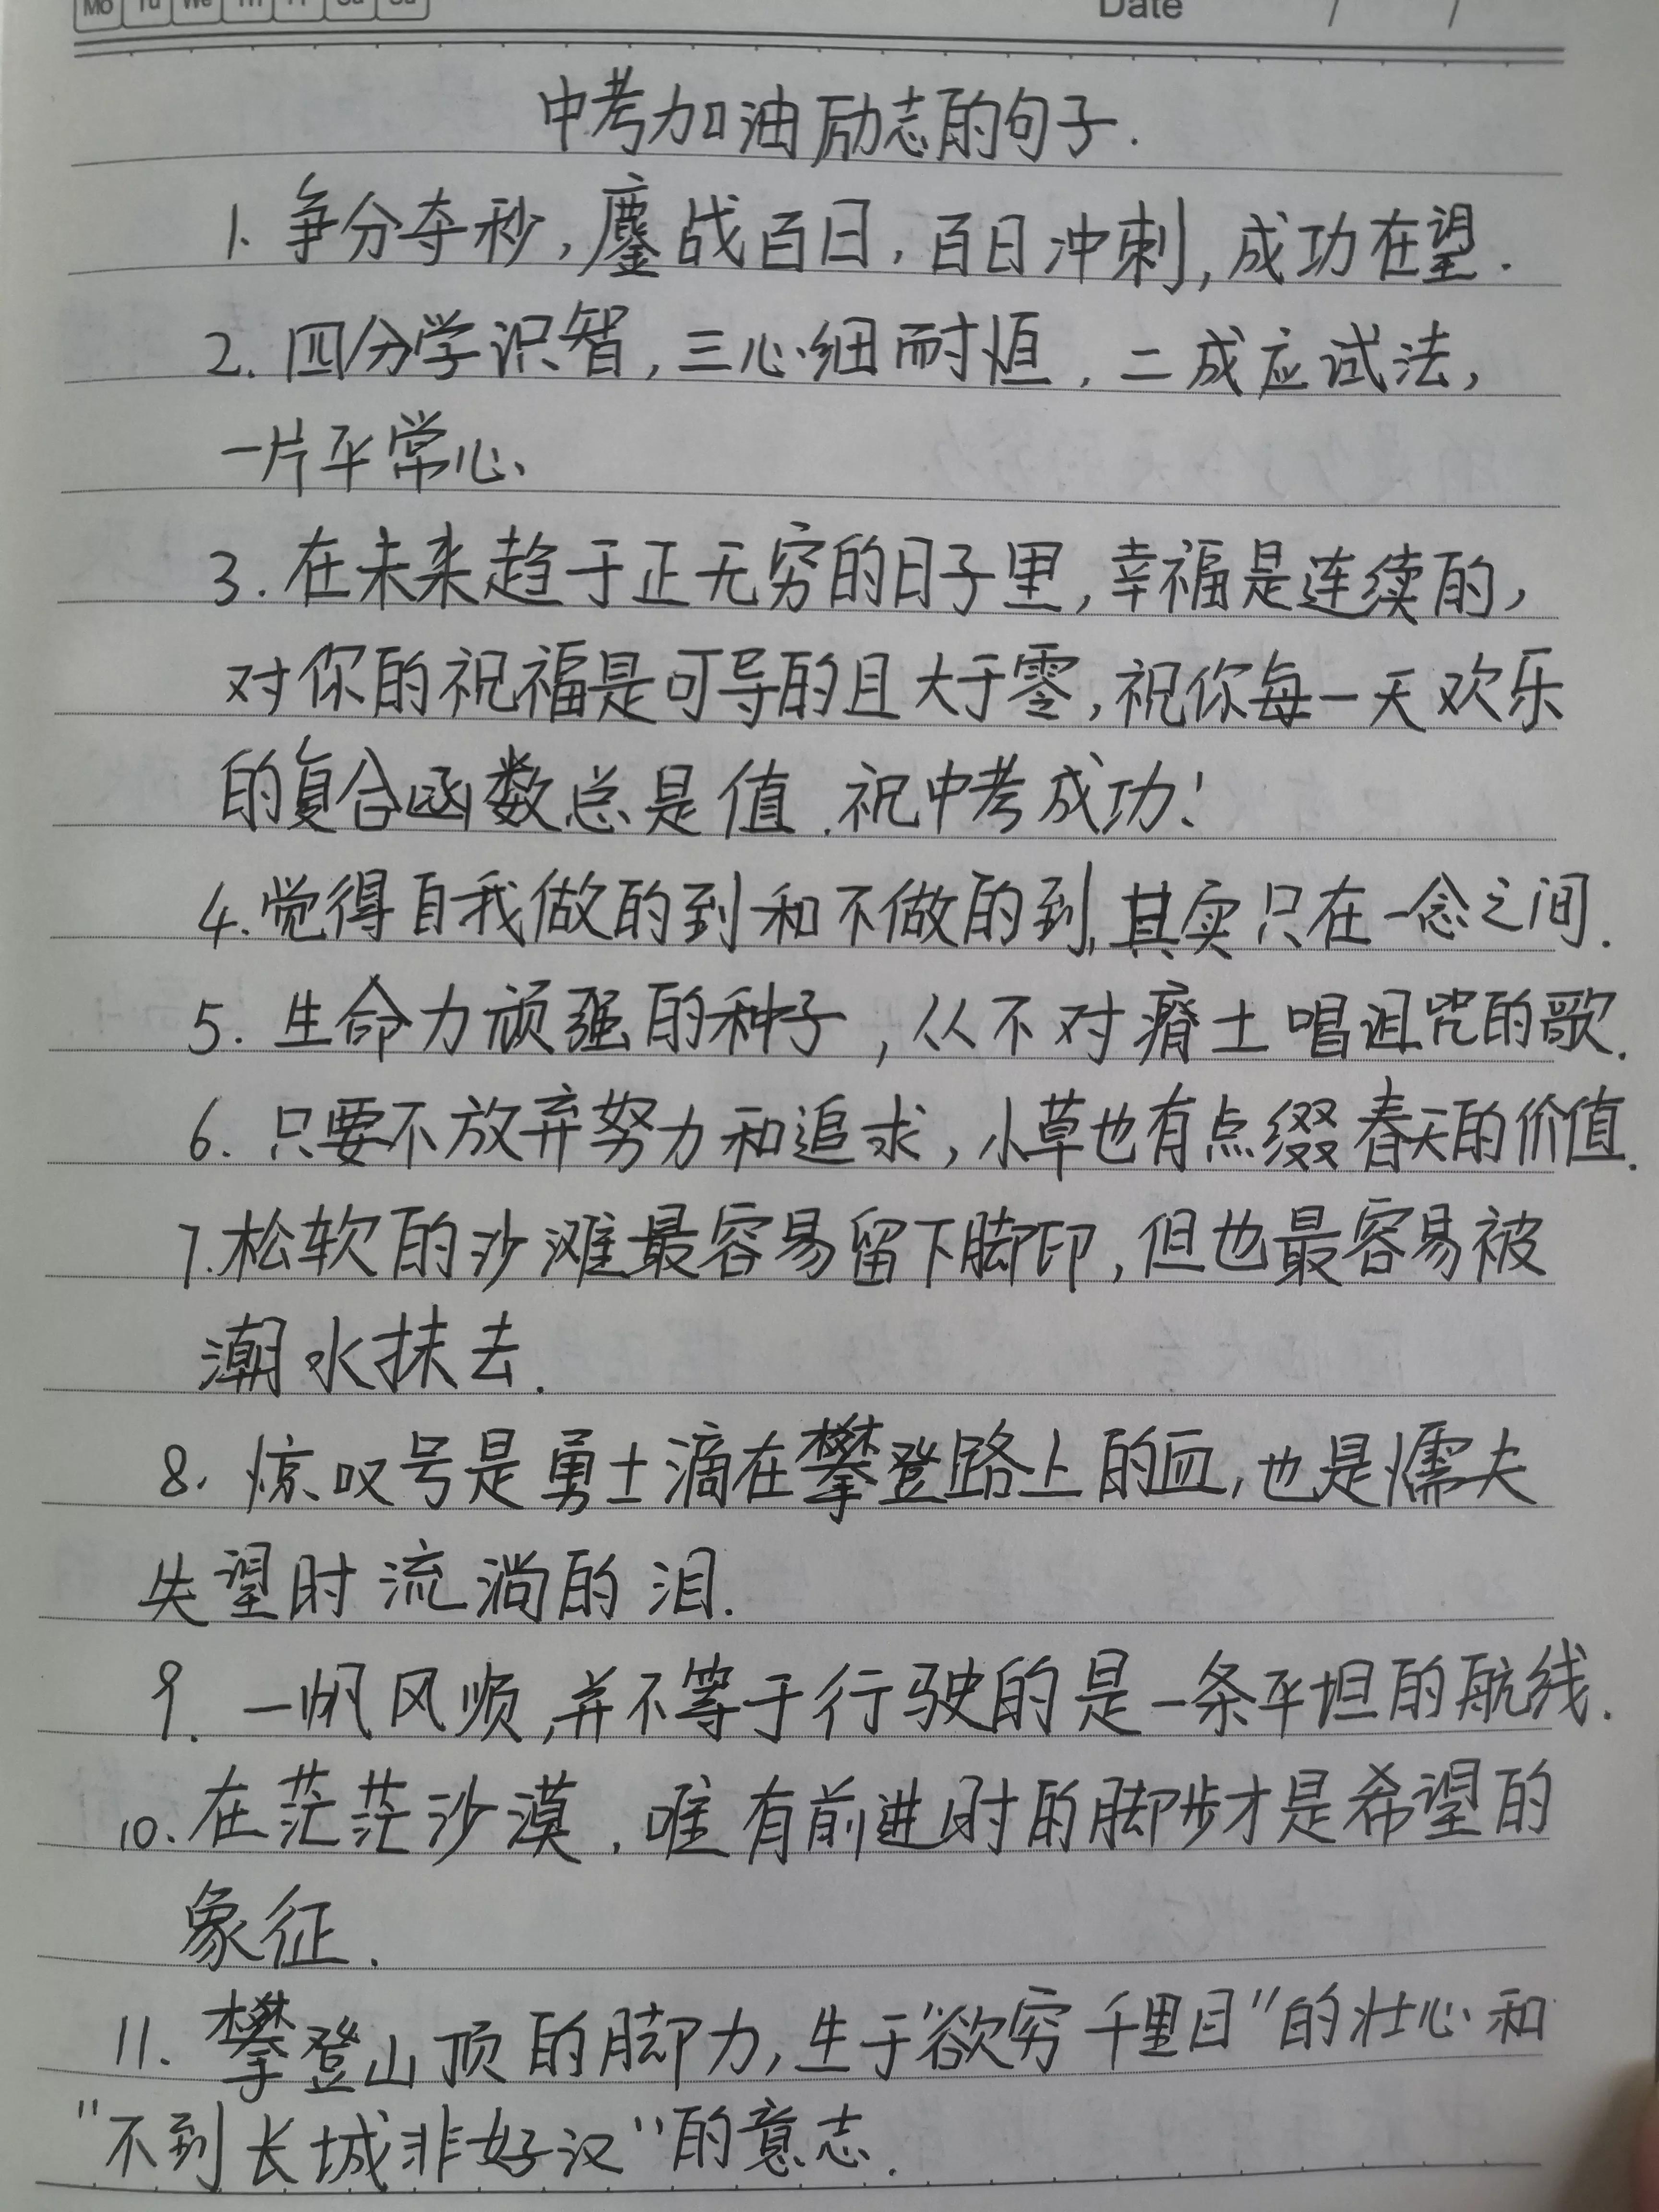 Mo Tu We Th Fr Sa Su
Date / /
中考加油励志的句子.
1. 争分夺秒,鏖战百日,百日冲刺,成功在望.
2. 四分学识智,三心细而恒,二成应试法,
一片平常心、
3. 在未来趋于正无穷的日子里,幸福是连续的,
对你的祝福是可导的且大于零,祝你每一天欢乐
的复合函数总是值.祝中考成功!
4. 觉得自我做的到和不做的到,其实只在一念之间.
5. 生命力顽强的种子,从不对瘠土唱诅咒的歌.
6. 只要不放弃努力和追求,小草也有点缀春天的价值.
7. 松软的沙滩最容易留下脚印,但也最容易被
潮水抹去.
8. 惊叹号是勇士滴在攀登路上的血,也是懦夫
失望时流淌的泪.
9. 一帆风顺,并不等于行驶的是一条平坦的航线.
10. 在茫茫沙漠,唯有前进时的脚步才是希望的
象征.
11. 攀登山顶的脚力,生于"欲穷千里目"的壮心和
"不到长城非好汉"的意志.